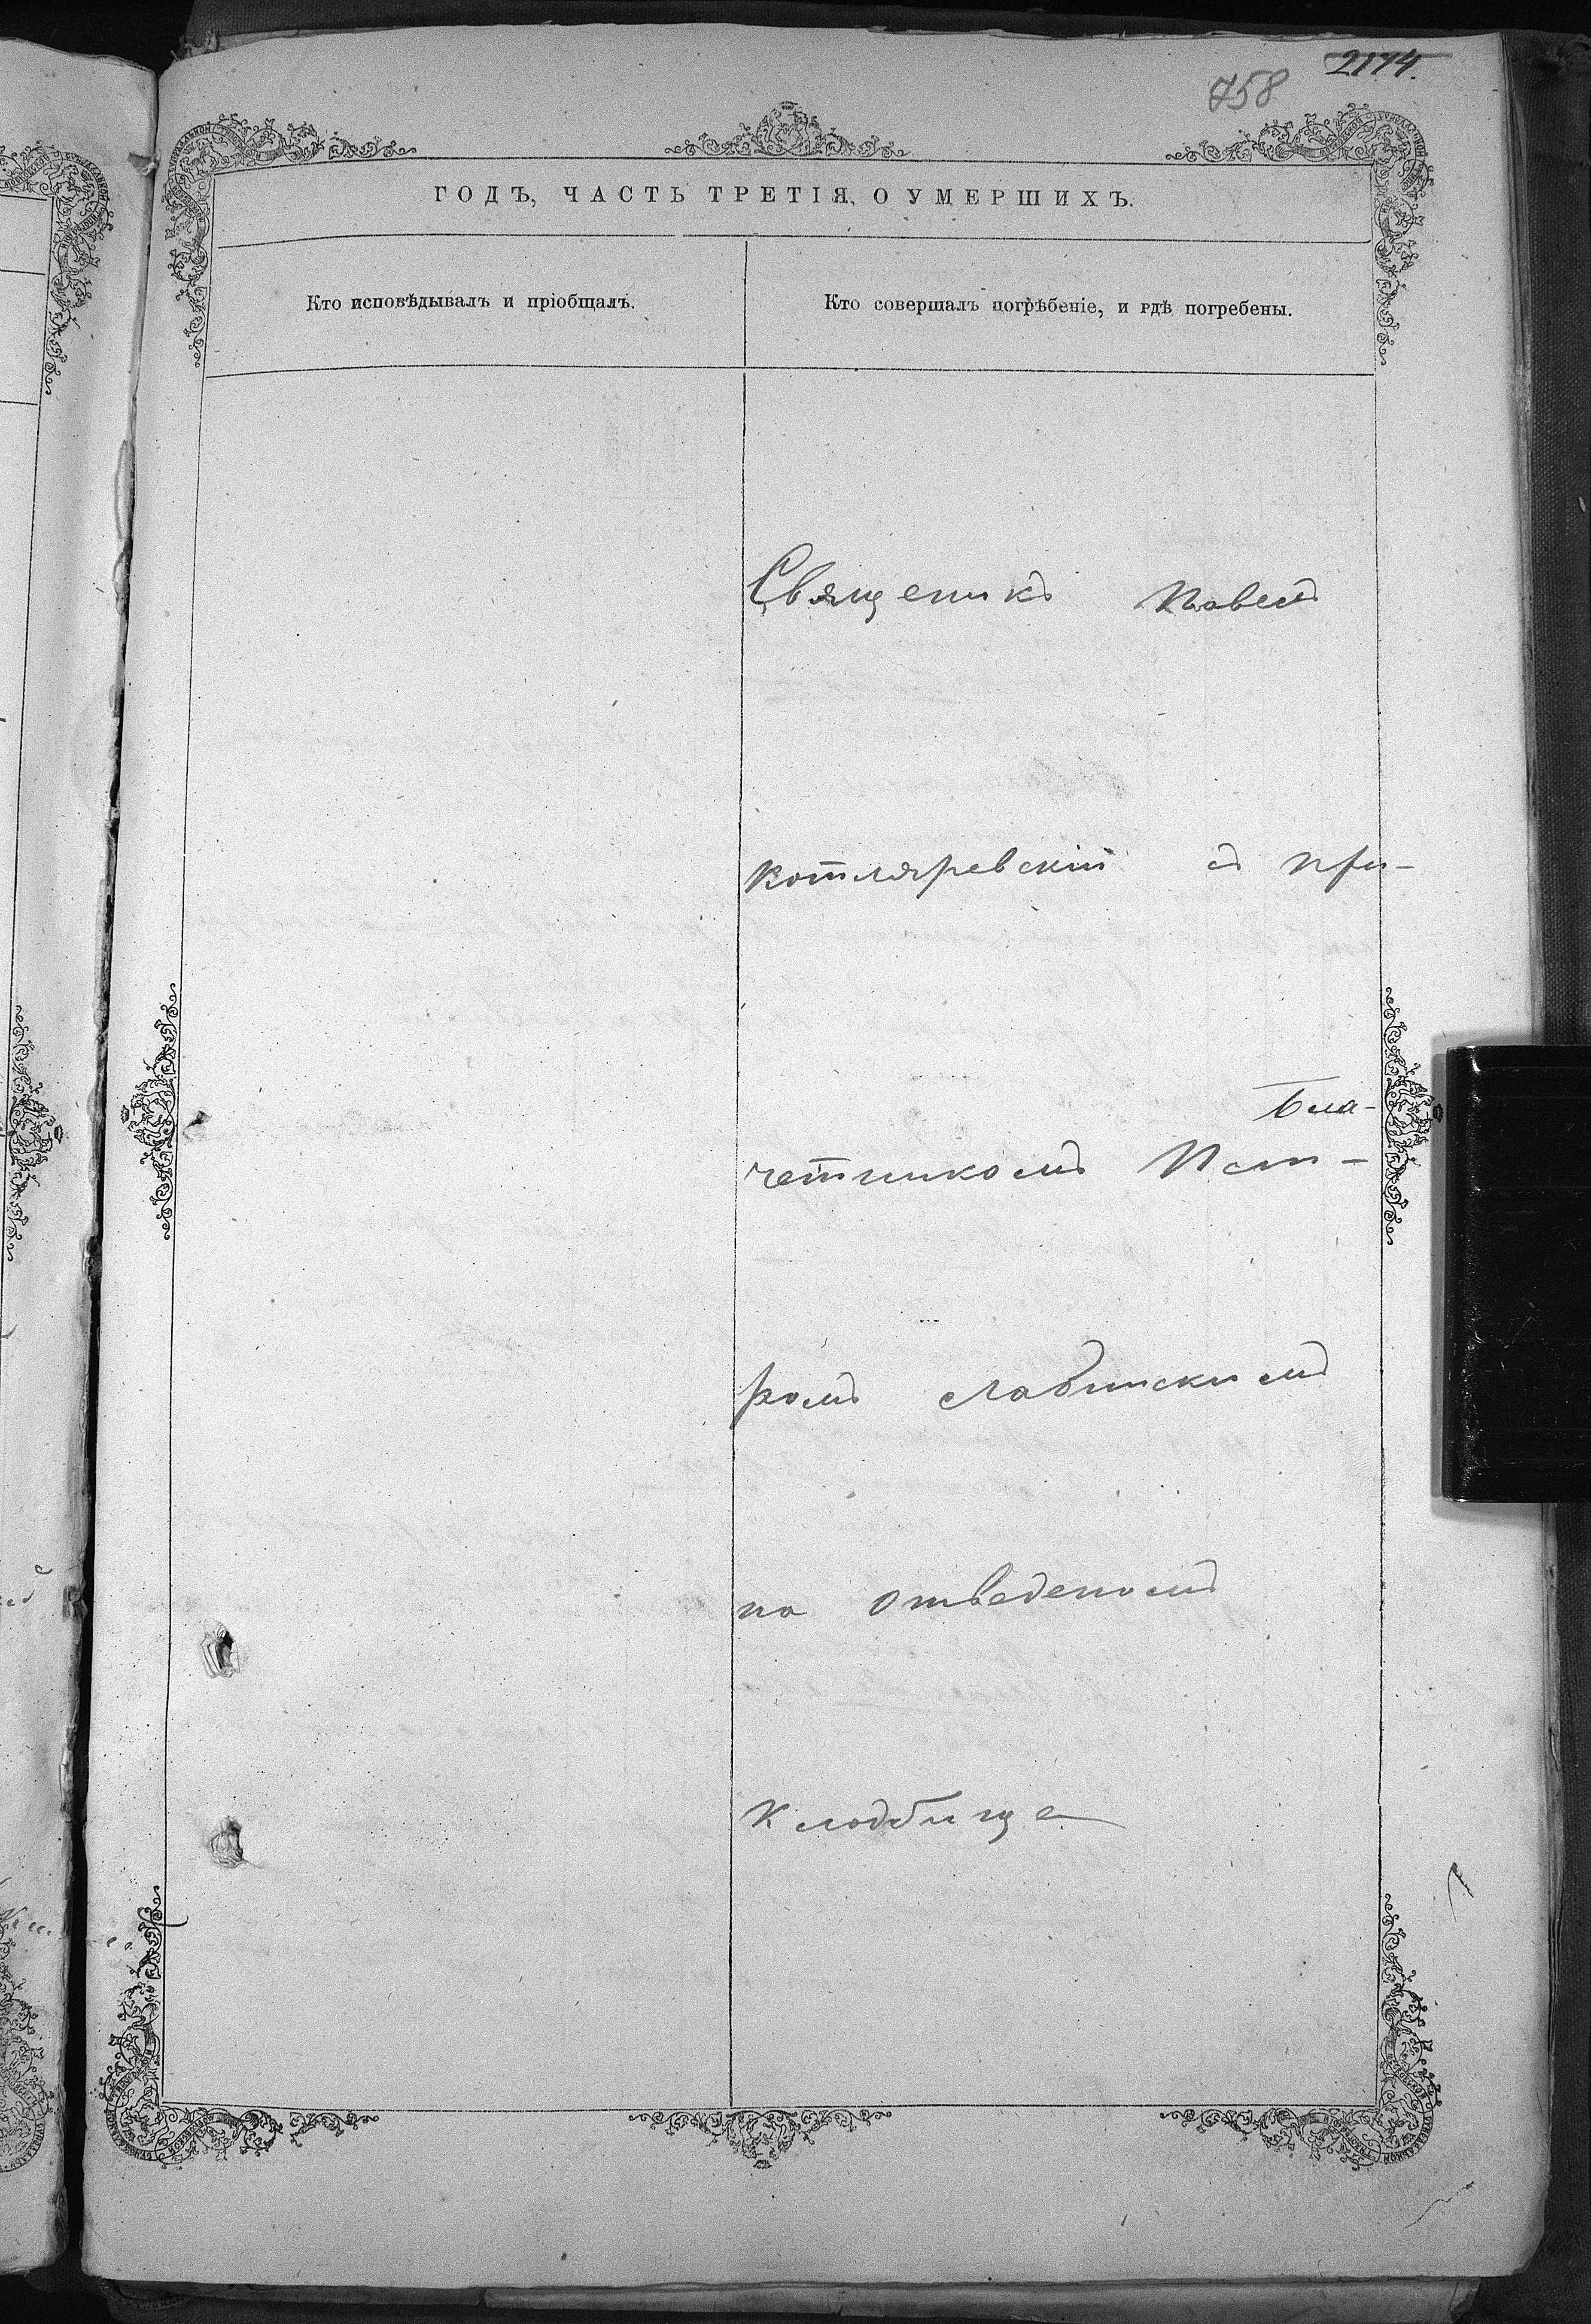 2174.
758
ГОДЪ, ЧАСТЬ ТРЕТІЯ, О УМЕРШИХЪ.
Кто исповѣдывалъ и пріобщалъ.
Кто совершалъ погрѣбеніе, и гдѣ погребены.
Священикъ Павелъ
Котляревскій съ при-
четникомъ
ромъ Лабинскимъ
на отведеномъ
Кладбище